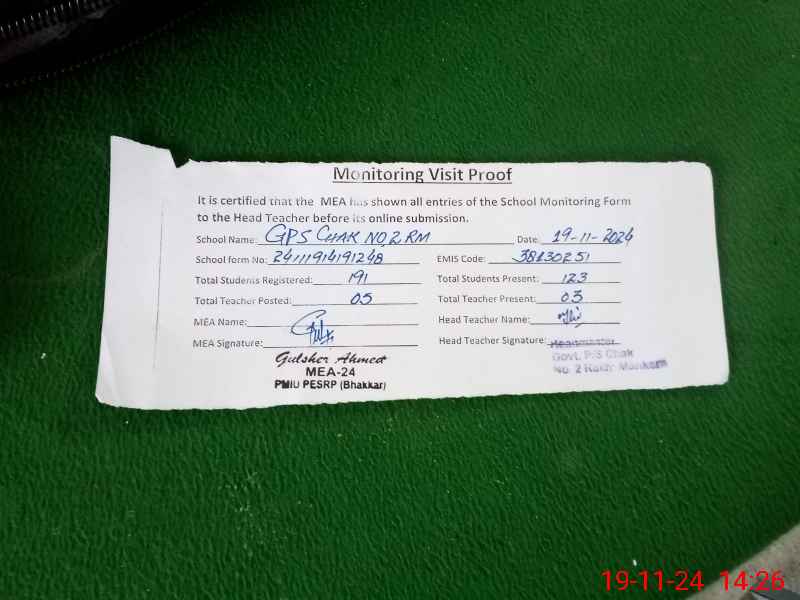 Monitoring Visit Proof
It is certified that the MEA has shown all entries of the School Monitoring Form
to the Head Teacher before its online submission.
School Name: GPS CHAK NO,2 RM Date: 19-11-2024
School form No: EMIS Code: 38130251
Total Students Registered: 191 Total Students Present: 123
Total Teacher Posted: 05 Total Teacher Present: 03
MEA Name: Head Teacher Name:
MEA Signature: Head Teacher Signature:
Headmaster
Gulsher Ahmed Govt. P/S Chak
MEA-24 No. 2 Rakh Mankera
PMIU PESRP (Bhakkar)
19-11-24 14:26